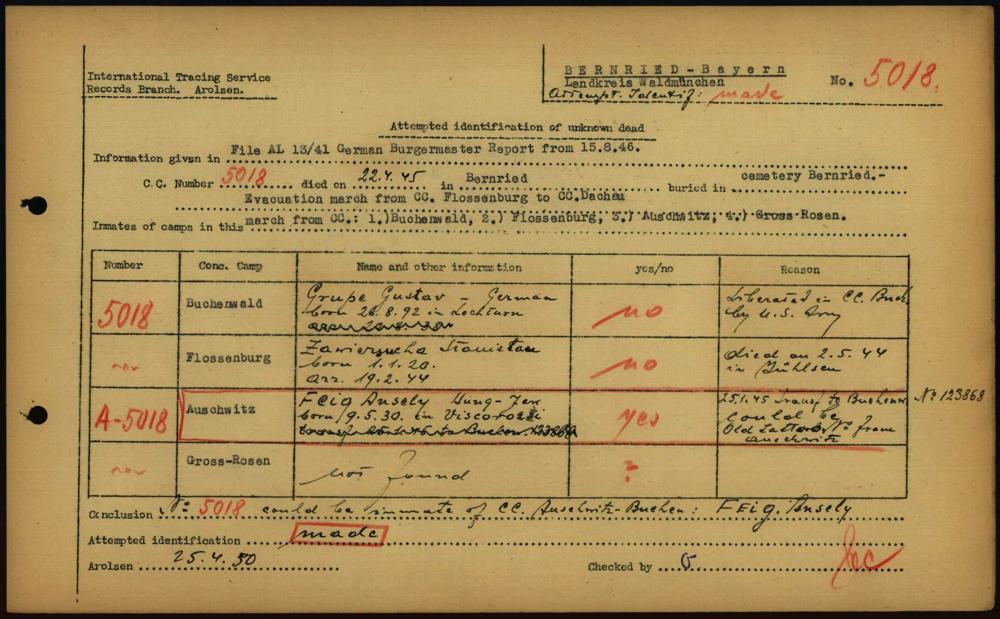 International Tracing Service
Records Branch. Arolsen.
BERNRIED-Bayern
Landkreis Waldmünchen
Attempt. Identif: made
No. 5018.
Attempted identification of unknown dead
Information given in File AL 13/41 German Burgermaster Report from 15.8.46.
C.C. Number 5018 died on 22.4.45 in Bernried buried in cemetery Bernried.-
Evacuation march from CC. Flossenburg to CC.Dachau
Inmates of camps in this march from CC.: 1.)Buchenwald, 2.) Flossenburg, 3.) Auschwitz, 4.) Gross-Rosen.
Number Conc. Camp Name and other information yes/no Reason
5018 Buchenwald Grupe Gustav - German no Liberated in CC. Buch.
born 26.8.92 in by U.S. Army
Flossenburg Zawierucha Stanislau no died on 2.5.44
born 1.1.20. in
arr. 19.2.44
A-5018 Auschwitz Feig Ansely Hung-Jew yes 25.1.45 transf. to Buchenw. No 123868
born 9.5.30. in could be
Old No from
Auschwitz
Gross-Rosen not found ?
Conclusion No 5018 could be inmate of CC. Auschwitz-Buchen: FEig. Ansely
Attempted identification made
Arolsen 25.4.50 Checked by